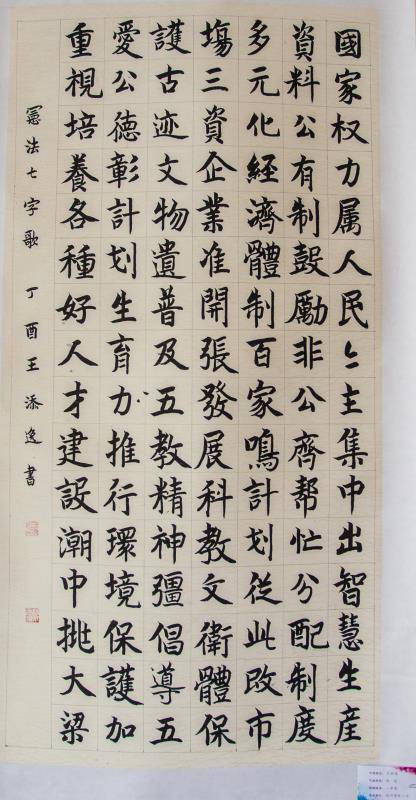 國家权力属人民々主集中出智慧生産
資料公有制鼓勵非公齊帮忙分配制度
多元化經濟體制百家鳴計划從此改市
塲三資企業准開張發展科教文衛體保
護古迹文物遺普及五教精神彊倡導五
愛公德彰計划生育力推行環境保護加
重視培養各種好人才建設潮中挑大梁
憲法七字歌 丁酉王添逸書